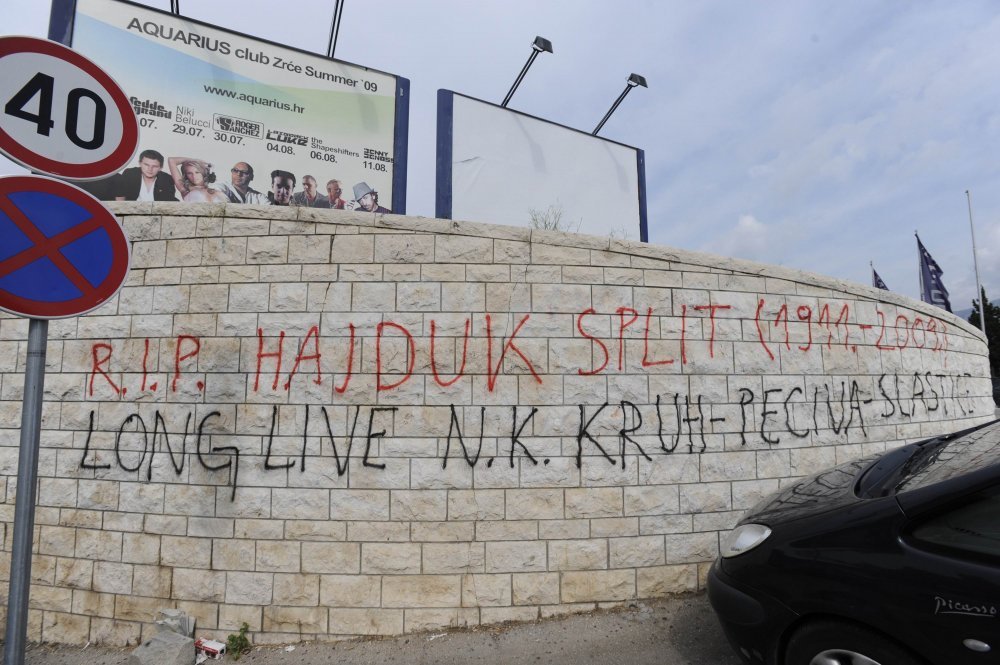 AQUARIUS club Zrće Summer `09
www.aquarius.hr
fedde Niki Belucci ROGER SANCHEZ LUKE the Shapeshifters BENNY
.07. 29.07. 30.07. 04.08. 06.08. 11.08.
40
R.I.P. HAJDUK SPLIT (1911.-2009.)
LONG LIVE N.K. KRUH-PECIVA-SLASTICE
Picasso